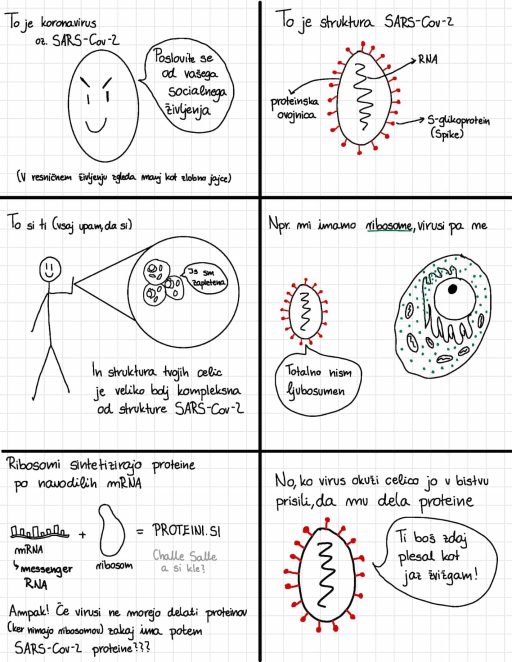 To je koronavirus
oz. SARS-Cov-2
Poslovite se
od vašega
socialnega
življenja
(V resničnem življenju zgleda manj kot zlobno jajce)
To je struktura SARS-Cov-2
RNA
proteinska
ovojnica
S-glikoprotein
(Spike)
To si ti (vsaj upam, da si)
Js sm
zapletena
In struktura tvojih celic
je veliko bolj kompleksna
od strukture SARS-Cov-2
Npr. mi imamo ribosome, virusi pa ne
Totalno nism
ljubosumen
Ribosomi sintetizirajo proteine
po navodilih mRNA
+
= PROTEINI.SI
mRNA
messenger
RNA
ribosom
Challe Salle
a si kle?
Ampak! Če virusi ne morejo delati proteinov
(ker nimajo ribosomov) zakaj ima potem
SARS-Cov-2 proteine???
No, ko virus okuži celico jo v bistvu
prisili, da mu dela proteine
Ti boš zdaj
plesal kot
jaz žvižgam!